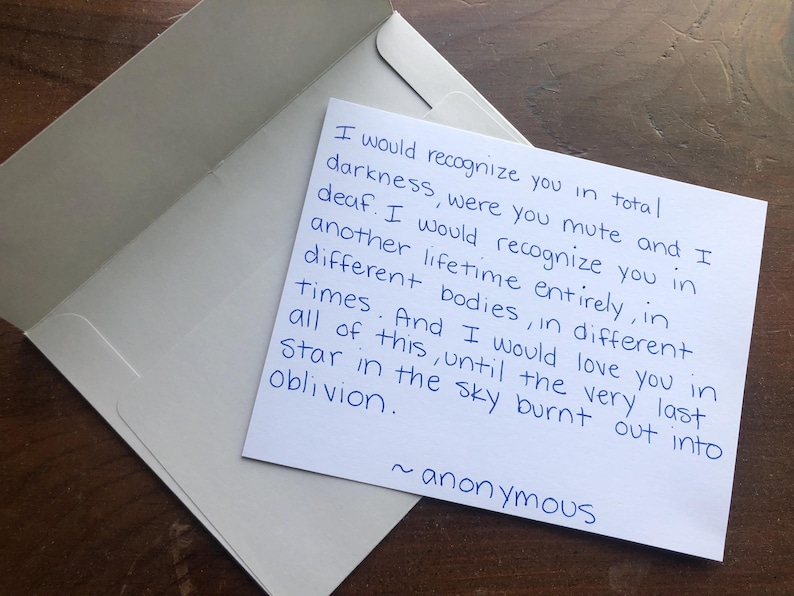 I would recognize you in total
darkness, were you mute and I
deaf. I would recognize you in
another lifetime entirely, in
different bodies, in different
times. And I would love you in
all of this, until the very last
star in the sky burnt out into
oblivion.
~anonymous